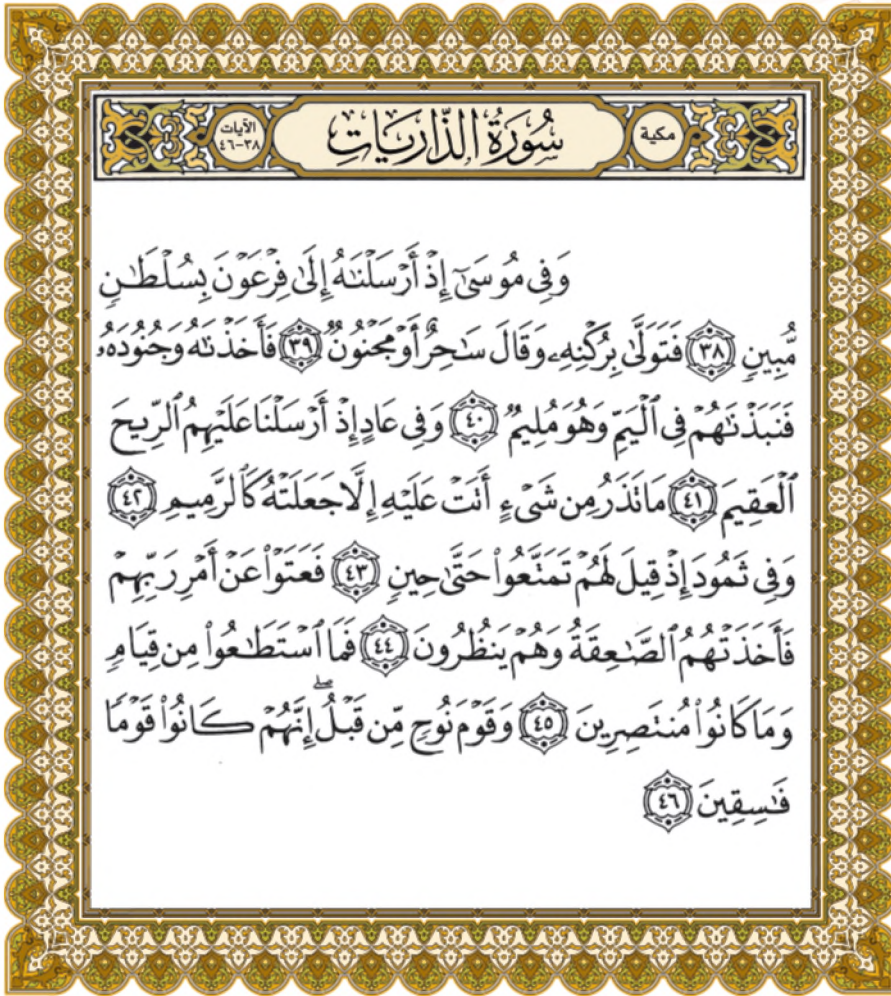 مكية
سُورَةُ الذَّارِيَاتِ
الآيات
٣٨-٤٦
وَفِي مُوسَىٰٓ إِذْ أَرْسَلْنَٰهُ إِلَىٰ فِرْعَوْنَ بِسُلْطَٰنٍ
مُّبِينٍ ٣٨ فَتَوَلَّىٰ بِرُكْنِهِۦ وَقَالَ سَٰحِرٌ أَوْ مَجْنُونٌ ٣٩ فَأَخَذْنَٰهُ وَجُنُودَهُۥ
فَنَبَذْنَٰهُمْ فِي ٱلْيَمِّ وَهُوَ مُلِيمٌ ٤٠ وَفِي عَادٍ إِذْ أَرْسَلْنَا عَلَيْهِمُ ٱلرِّيحَ
ٱلْعَقِيمَ ٤١ مَا تَذَرُ مِن شَىْءٍ أَتَتْ عَلَيْهِ إِلَّا جَعَلَتْهُ كَٱلرَّمِيمِ ٤٢
وَفِي ثَمُودَ إِذْ قِيلَ لَهُمْ تَمَتَّعُوا۟ حَتَّىٰ حِينٍ ٤٣ فَعَتَوْا۟ عَنْ أَمْرِ رَبِّهِمْ
فَأَخَذَتْهُمُ ٱلصَّٰعِقَةُ وَهُمْ يَنظُرُونَ ٤٤ فَمَا ٱسْتَطَٰعُوا۟ مِن قِيَامٍ
وَمَا كَانُوا۟ مُنتَصِرِينَ ٤٥ وَقَوْمَ نُوحٍ مِّن قَبْلُ ۖ إِنَّهُمْ كَانُوا۟ قَوْمًا
فَٰسِقِينَ ٤٦